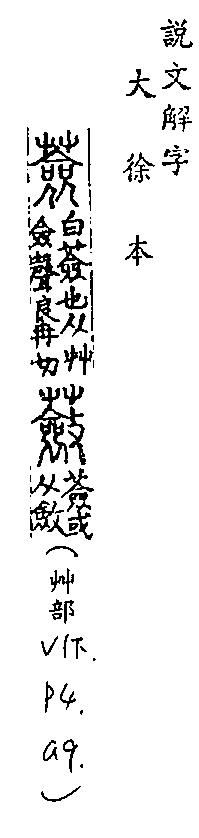 説文解字
大徐本
薟白薟也从艸
僉聲良冉切蘞薟或
从斂（艸部
V1下.
P4.
a9.）